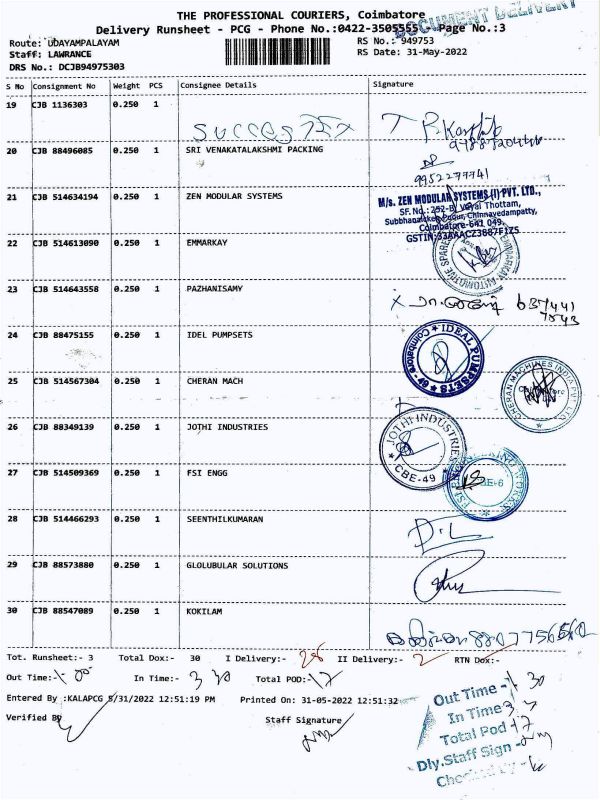 THE PROFESSIONAL COURIERS, Coimbatore
Delivery Runsheet - PCG - Phone No.:0422-3505555 Page No.:3
DOCUMENT DELIVERY
Route: UDAYAMPALAYAM RS No.: 949753
Staff: LAWRANCE RS Date: 31-May-2022
DRS No.: DCJB94975303
S No Consignment No Weight PCS Consignee Details Signature
19 CJB 1136303 0.250 1
20 CJB 88496085 0.250 1 SRI VENAKATALAKSHMI PACKING
9952277741
21 CJB 514634194 0.250 1 ZEN MODULAR SYSTEMS
M/s. ZEN MODULAR SYSTEMS (I) PVT. LTD.,
SF. No.: 252-B, Vayal Thottam,
Coimbatore-641 049.
22 CJB 514613090 0.250 1 EMMARKAY
23 CJB 514643558 0.250 1 PAZHANISAMY
637441
7843
24 CJB 88475155 0.250 1 IDEL PUMPSETS
IDEAL PUMPSETS
Coimbatore-49
25 CJB 514567304 0.250 1 CHERAN MACH
CHERAN MACHINES INDIA PVT. LTD.
26 CJB 88349139 0.250 1 JOTHI INDUSTRIES
JOTHI INDUSTRIES
CBE-49
27 CJB 514509369 0.250 1 FSI ENGG
28 CJB 514466293 0.250 1 SEENTHILKUMARAN
29 CJB 88573880 0.250 1 GLOLUBULAR SOLUTIONS
30 CJB 88547089 0.250 1 KOKILAM
Tot. Runsheet:- 3 Total Dox:- 30 I Delivery:- 28 II Delivery:- 2 RTN Dox:-
Out Time:- In Time:- 3 30 Total POD:- 17
Entered By :KALAPCG 5/31/2022 12:51:19 PM Printed On: 31-05-2022 12:51:32
Verified By Staff Signature
Out Time - 1. 30
In Time
Total Pod - 17
Dly.Staff Sign -
Checked By -